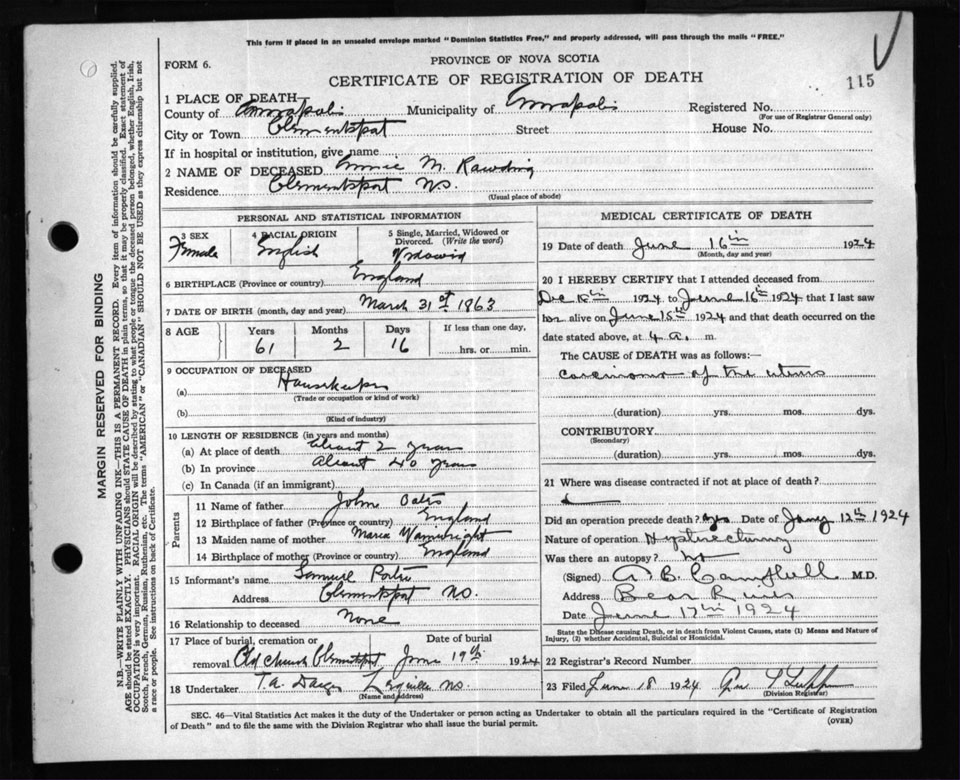 This form if placed in an unsealed envelope marked "Dominion Statistics Free," and properly addressed, will pass through the mails "FREE."
FORM 6.
PROVINCE OF NOVA SCOTIA
CERTIFICATE OF REGISTRATION OF DEATH
115
1 PLACE OF DEATH—
County of Annapolis Municipality of Annapolis Registered No.
(For use of Registrar General only)
City or Town Clementsport Street House No.
If in hospital or institution, give name
2 NAME OF DECEASED Annie M. Rawding
Residence Clementsport NS.
(Usual place of abode)
PERSONAL AND STATISTICAL INFORMATION
3 SEX Female
4 RACIAL ORIGIN English
5 Single, Married, Widowed or Divorced. (Write the word)
6 BIRTHPLACE (Province or country) England
7 DATE OF BIRTH (month, day and year) March 31st 1863
8 AGE Years 61 Months 2 Days 16 If less than one day, hrs. or min.
9 OCCUPATION OF DECEASED
(a) Housekeeper
(Trade or occupation or kind of work)
(b)
(Kind of industry)
10 LENGTH OF RESIDENCE (in years and months)
(a) At place of death About 2 years
(b) In province About 40 years
(c) In Canada (if an immigrant)
Parents
11 Name of father John Oates
12 Birthplace of father (Province or country) England
13 Maiden name of mother Maria Wainwright
14 Birthplace of mother (Province or country) England
15 Informant's name Samuel
Address Clementsport NS.
16 Relationship to deceased None
17 Place of burial, cremation or removal Old Church Clementsport Date of burial June 19th 1924
18 Undertaker T.A. Lequille NS.
(Name and address)
MEDICAL CERTIFICATE OF DEATH
19 Date of death June 16th 1924
(Month, day and year)
20 I HEREBY CERTIFY that I attended deceased from
Dec 1924 to June 16th 1924 that I last saw
her alive on June 15th 1924 and that death occurred on the
date stated above, at 4 a. m.
The CAUSE of DEATH was as follows:—
Carcinoma of the uterus
(duration) yrs. mos. dys.
CONTRIBUTORY
(Secondary)
(duration) yrs. mos. dys.
21 Where was disease contracted if not at place of death?
Did an operation precede death? Yes Date of Jany 12th 1924
Nature of operation Hysterectomy
Was there an autopsy? No
(Signed) A B Campbell M.D.
Address Bear River
Date June 17th 1924
State the Disease causing Death, or in death from Violent Causes, state (1) Means and Nature of
Injury, (2) whether Accidental, Suicidal or Homicidal.
22 Registrar's Record Number
23 Filed June 18 1924
(Division Registrar)
SEC. 46—Vital Statistics Act makes it the duty of the Undertaker or person acting as Undertaker to obtain all the particulars required in the "Certificate of Registration
of Death" and to file the same with the Division Registrar who shall issue the burial permit.
(OVER)
MARGIN RESERVED FOR BINDING
N.B.—WRITE PLAINLY WITH UNFADING INK—THIS IS A PERMANENT RECORD. Every item of information should be carefully supplied.
AGE should be stated EXACTLY. PHYSICIANS should STATE CAUSE OF DEATH in plain terms, so that it may be properly classified. Exact statement of
OCCUPATION is very important. RACIAL ORIGIN will be described by stating to what people or tongue the deceased person belonged, whether English, Irish,
Scotch, French, German, Russian, Ruthenian, etc. The terms "AMERICAN" or "CANADIAN" SHOULD NOT BE USED as they express citizenship but not
a race or people. See instructions on back of Certificate.